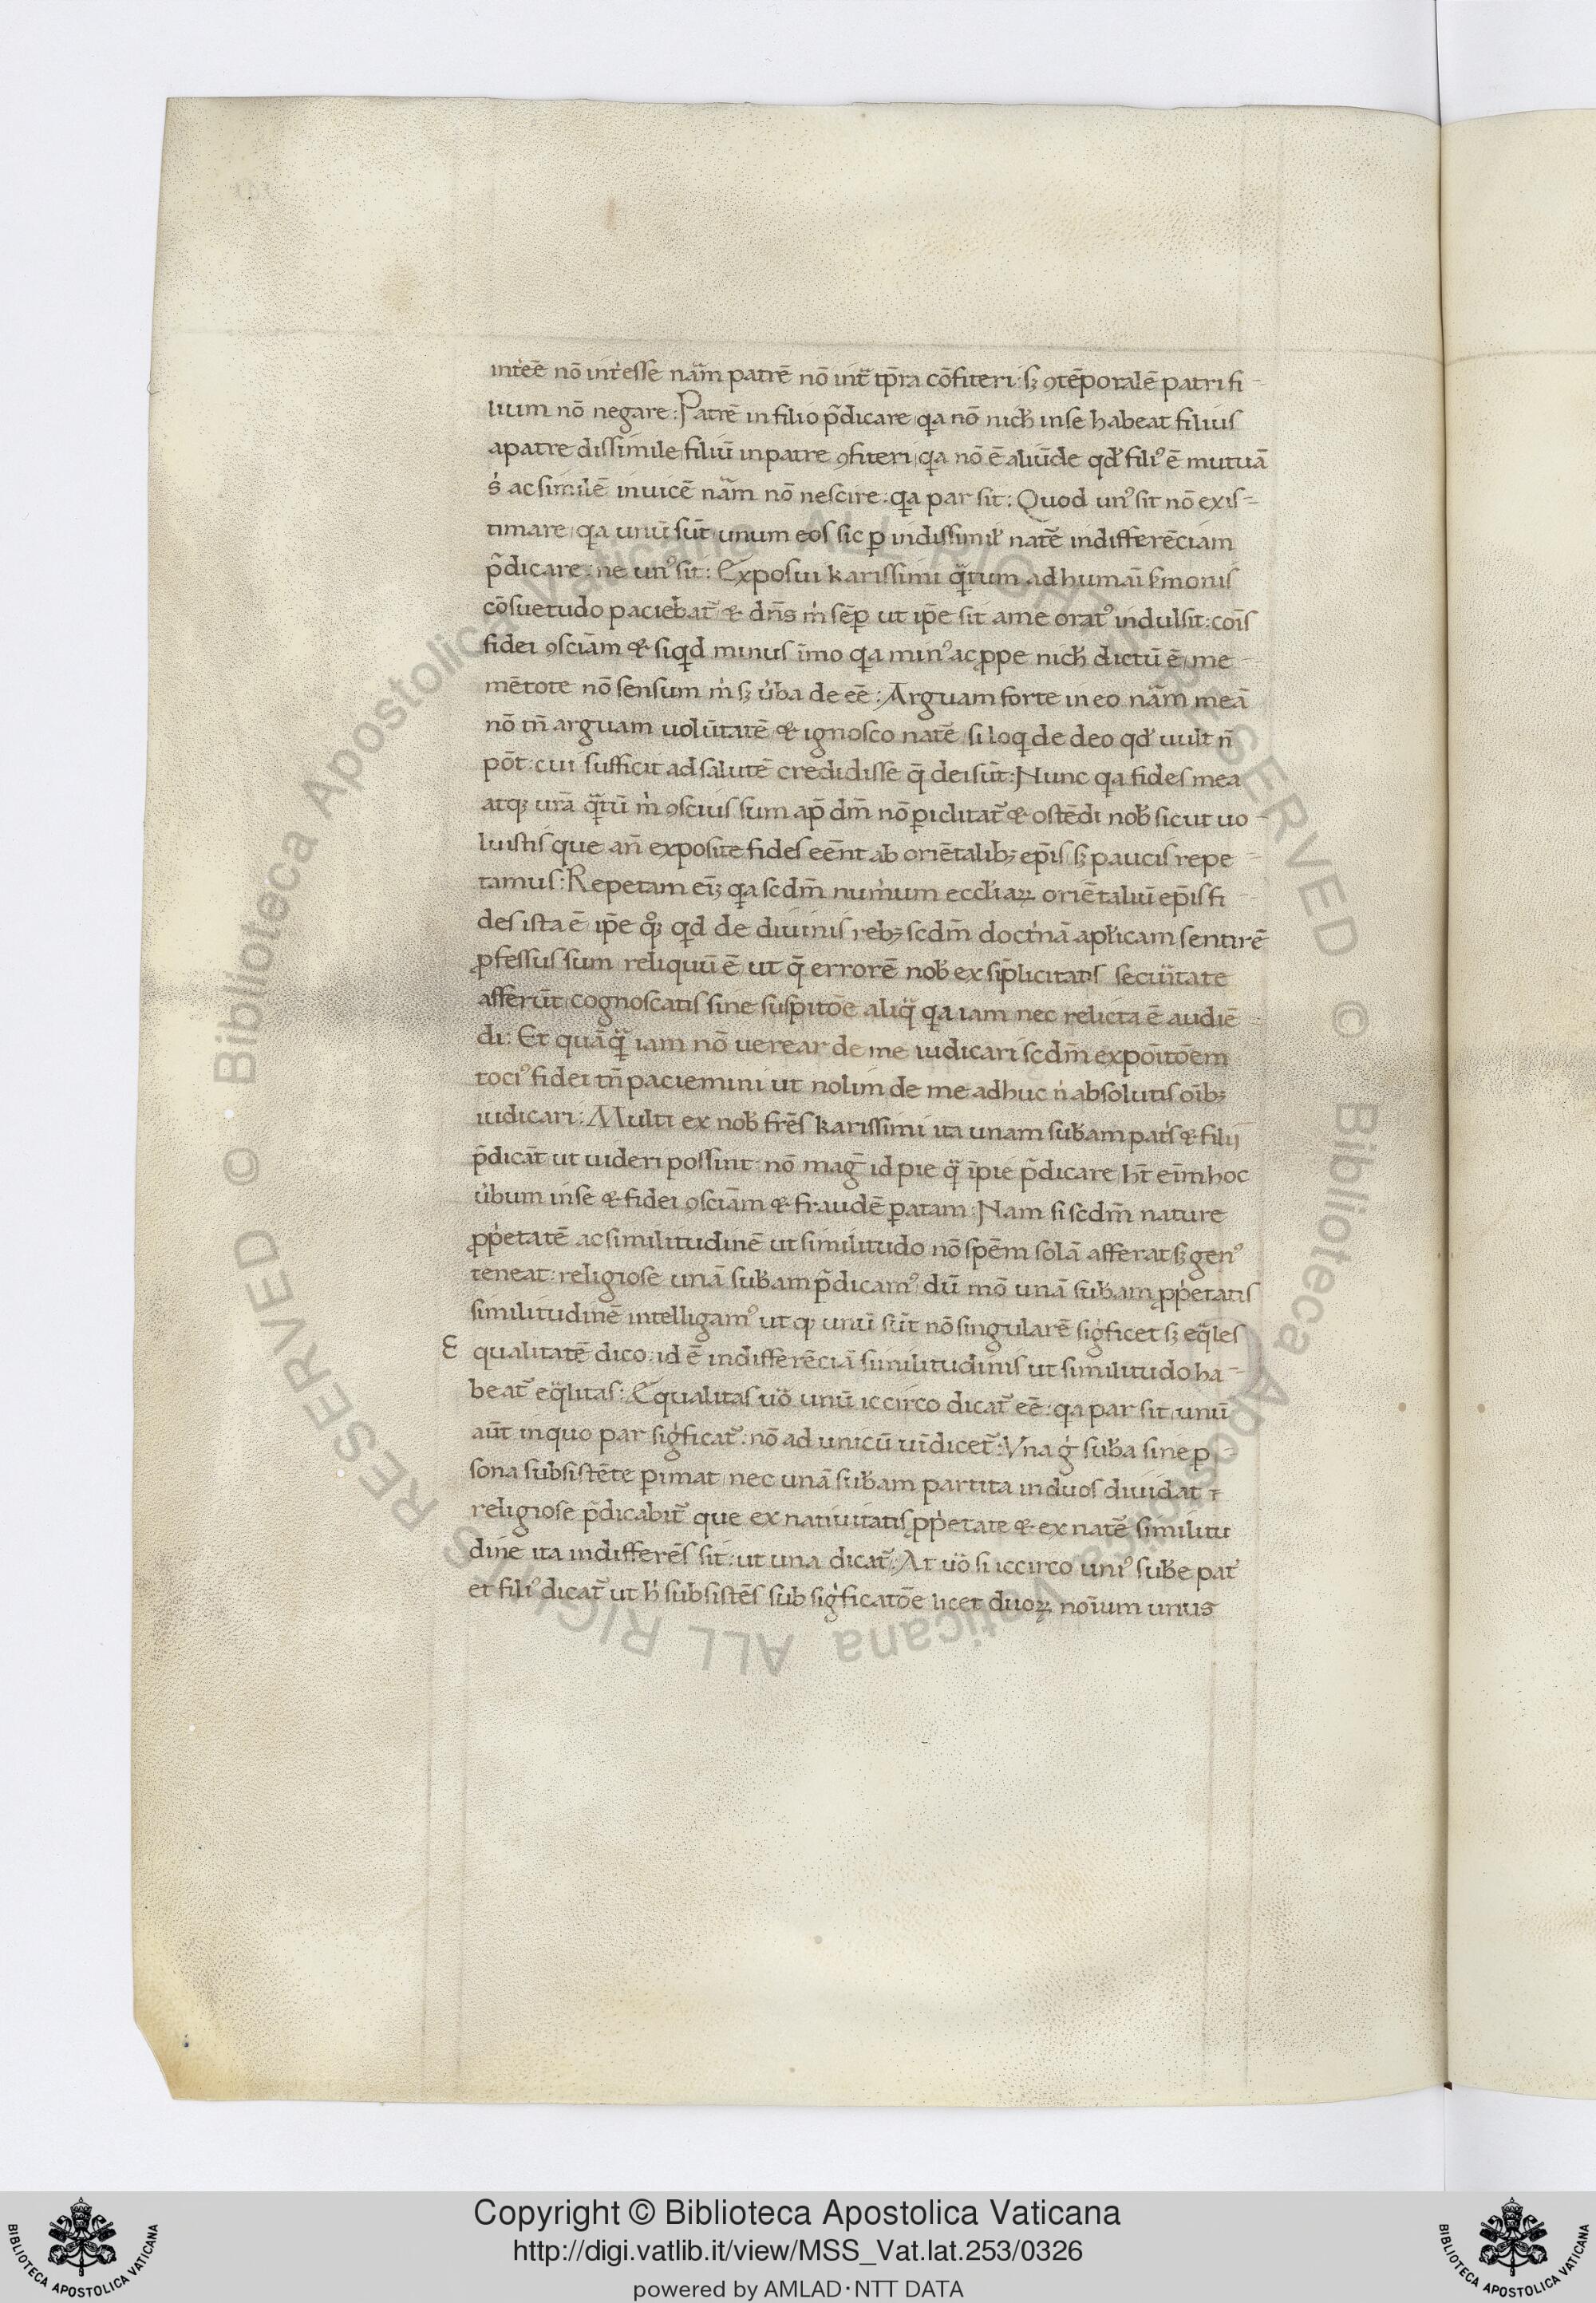 int̓eē nō int̓esse nãm patrē nō int̃ tp̄ra cōfiteri: sꝫ ꝯtēporalē patri fi-
lium nō negare: Patrē in filio p̃dicare qͣa nō nich̓ inse habeat filius
apatre dissimile filiū inpatre ꝯfiteri qͣa nō ē aliūde qd̓ filiꝰ ē mutuā
s̓ ac similē inuicē nãm nō nescire: qͣa par sit: Quod unꝰ sit nō exis-
timare qͣa unū sūt unum eos sic ꝑ indissimil̓ natē indifferēciam
p̃dicare: ne unꝰ sit: Exposui karissimi qͣ̃tum ad humāi s̓monis
cōsuetudo paciebat̃ & dn̄s m̓ sēꝑ ut ip̄e sit ame oratꝰ indulsit: coīs
fidei ꝯsciām & siqͥd minus īmo qͣa minꝰ ac ꝓpe nich̓ dictū ē me-
mētote nō sensum m̓ sꝫ u̓ba de eē: Arguam forte in eo nãm meā
nō tn̄ arguam uolūtatē & ignosco natē si loqͥ de deo qd̓ uult n̄
pōt: cui sufficit ad salutē credidisse q̄ dei sūt: Nunc qͣa fides mea
atqꝫ ur̄a qͣ̃tū m̓ ꝯscius sum ap̄ dm̄ nō ꝑiclitat̃ & ostēdi nob̓ sicut uo-
luistis que an̄ exposite fides eēnt ab oriētalibꝫ ep̄is sꝫ paucis repe-
tamus: Repetam eīꝫ qͣa scdm̄ num̓um eccl̓iaꝝ oriētaliū ep̄is fi-
des ista ē ip̄e qͦꝫ qͥd de diuinis rebꝫ scdm̄ doct̓nā apl̓icam sentirē
ꝓfessus sum reliquū ē ut q̄ errorē nob̓ ex sīplicitatis secuitate
afferūt cognoscatis sine suspitōe aliqͣ̈ qͣa iam nec relicta ē audiē-
di: Et quāqͣ̃ iam nō uerear de me iudicari scdm̄ expōitōem
tociꝰ fidei tn̄ paciemini ut nolim de me adhuc n̓ absolutis oībꝫ
iudicari: Multi ex nob̓ frēs karissimi ita unam sub̓am pat̓s & filij
p̃dicāt ut uideri possint nō mag̃ id pie qͣ̃ īpie p̃dicare hn̄t eīm hoc
u̓bum inse & fidei ꝯsciām & fraudē ꝑatam: Nam si scdm̄ nature
ꝓp̓etatē ac similitudinē ut similitudo nō spēm solā afferat sꝫ genꝰ
teneat: religiose unā sub̓am p̃dicamꝰ dū mō unā sub̓am ꝓp̓etatis
similitudinē intelligamꝰ ut ꝙ unū sūt nō singularē sig̓ficet sꝫ eqͣ̈les
E qualitatē dico: id ē indifferēciā similitudinis ut similitudo ha-
beat̃ eqͣ̈litas: Equalitas uō unū iccirco dicat̃ eē: qͣa par sit unū
aūt inquo par sig̓ficat̃: nō ad unicū uīdicet̃: Vna g̓ sub̓a sine ꝑ-
sona subsistēte ꝑimat nec unā sub̓am partita induos diuidat ⁊
religiose p̃dicabit̃ que ex natiuitatis ꝓp̓etate & ex natē similitu
dine ita indifferēs sit: ut una dicat̃: At uō si iccirco uniꝰ sub̓e pat̓
et filiꝰ dicat̃ ut h̓ subsistēs sub sig̓ficatōe licet duoꝝ noīum unus
ALL RIGHTS RESERVED © Biblioteca Apostolica Vaticana ALL RIGHTS RESERVED © Biblioteca Apostolica Vaticana
Copyright © Biblioteca Apostolica Vaticana
http://digi.vatlib.it/view/MSS_Vat.lat.253/0326
powered by AMLAD·NTT DATA
BIBLIOTECA APOSTOLICA VATICANA
BIBLIOTECA APOSTOLICA VATICANA